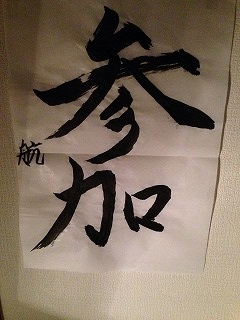 参加
航